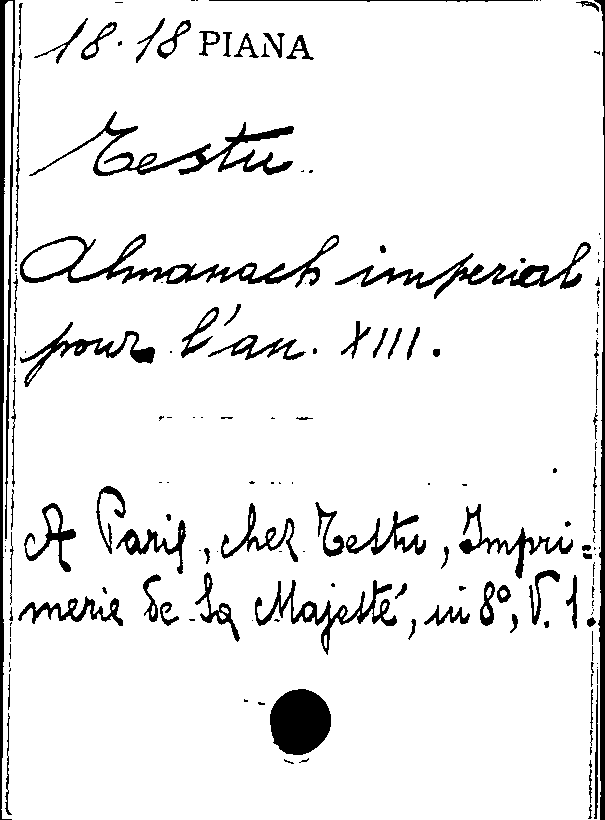 18.18 PIANA
Testu
Almanach imperial
pour l'an. XIII.
A Paris, chez Testu, Impri=
merie de Sa Majesté, in 8º, V. 1.